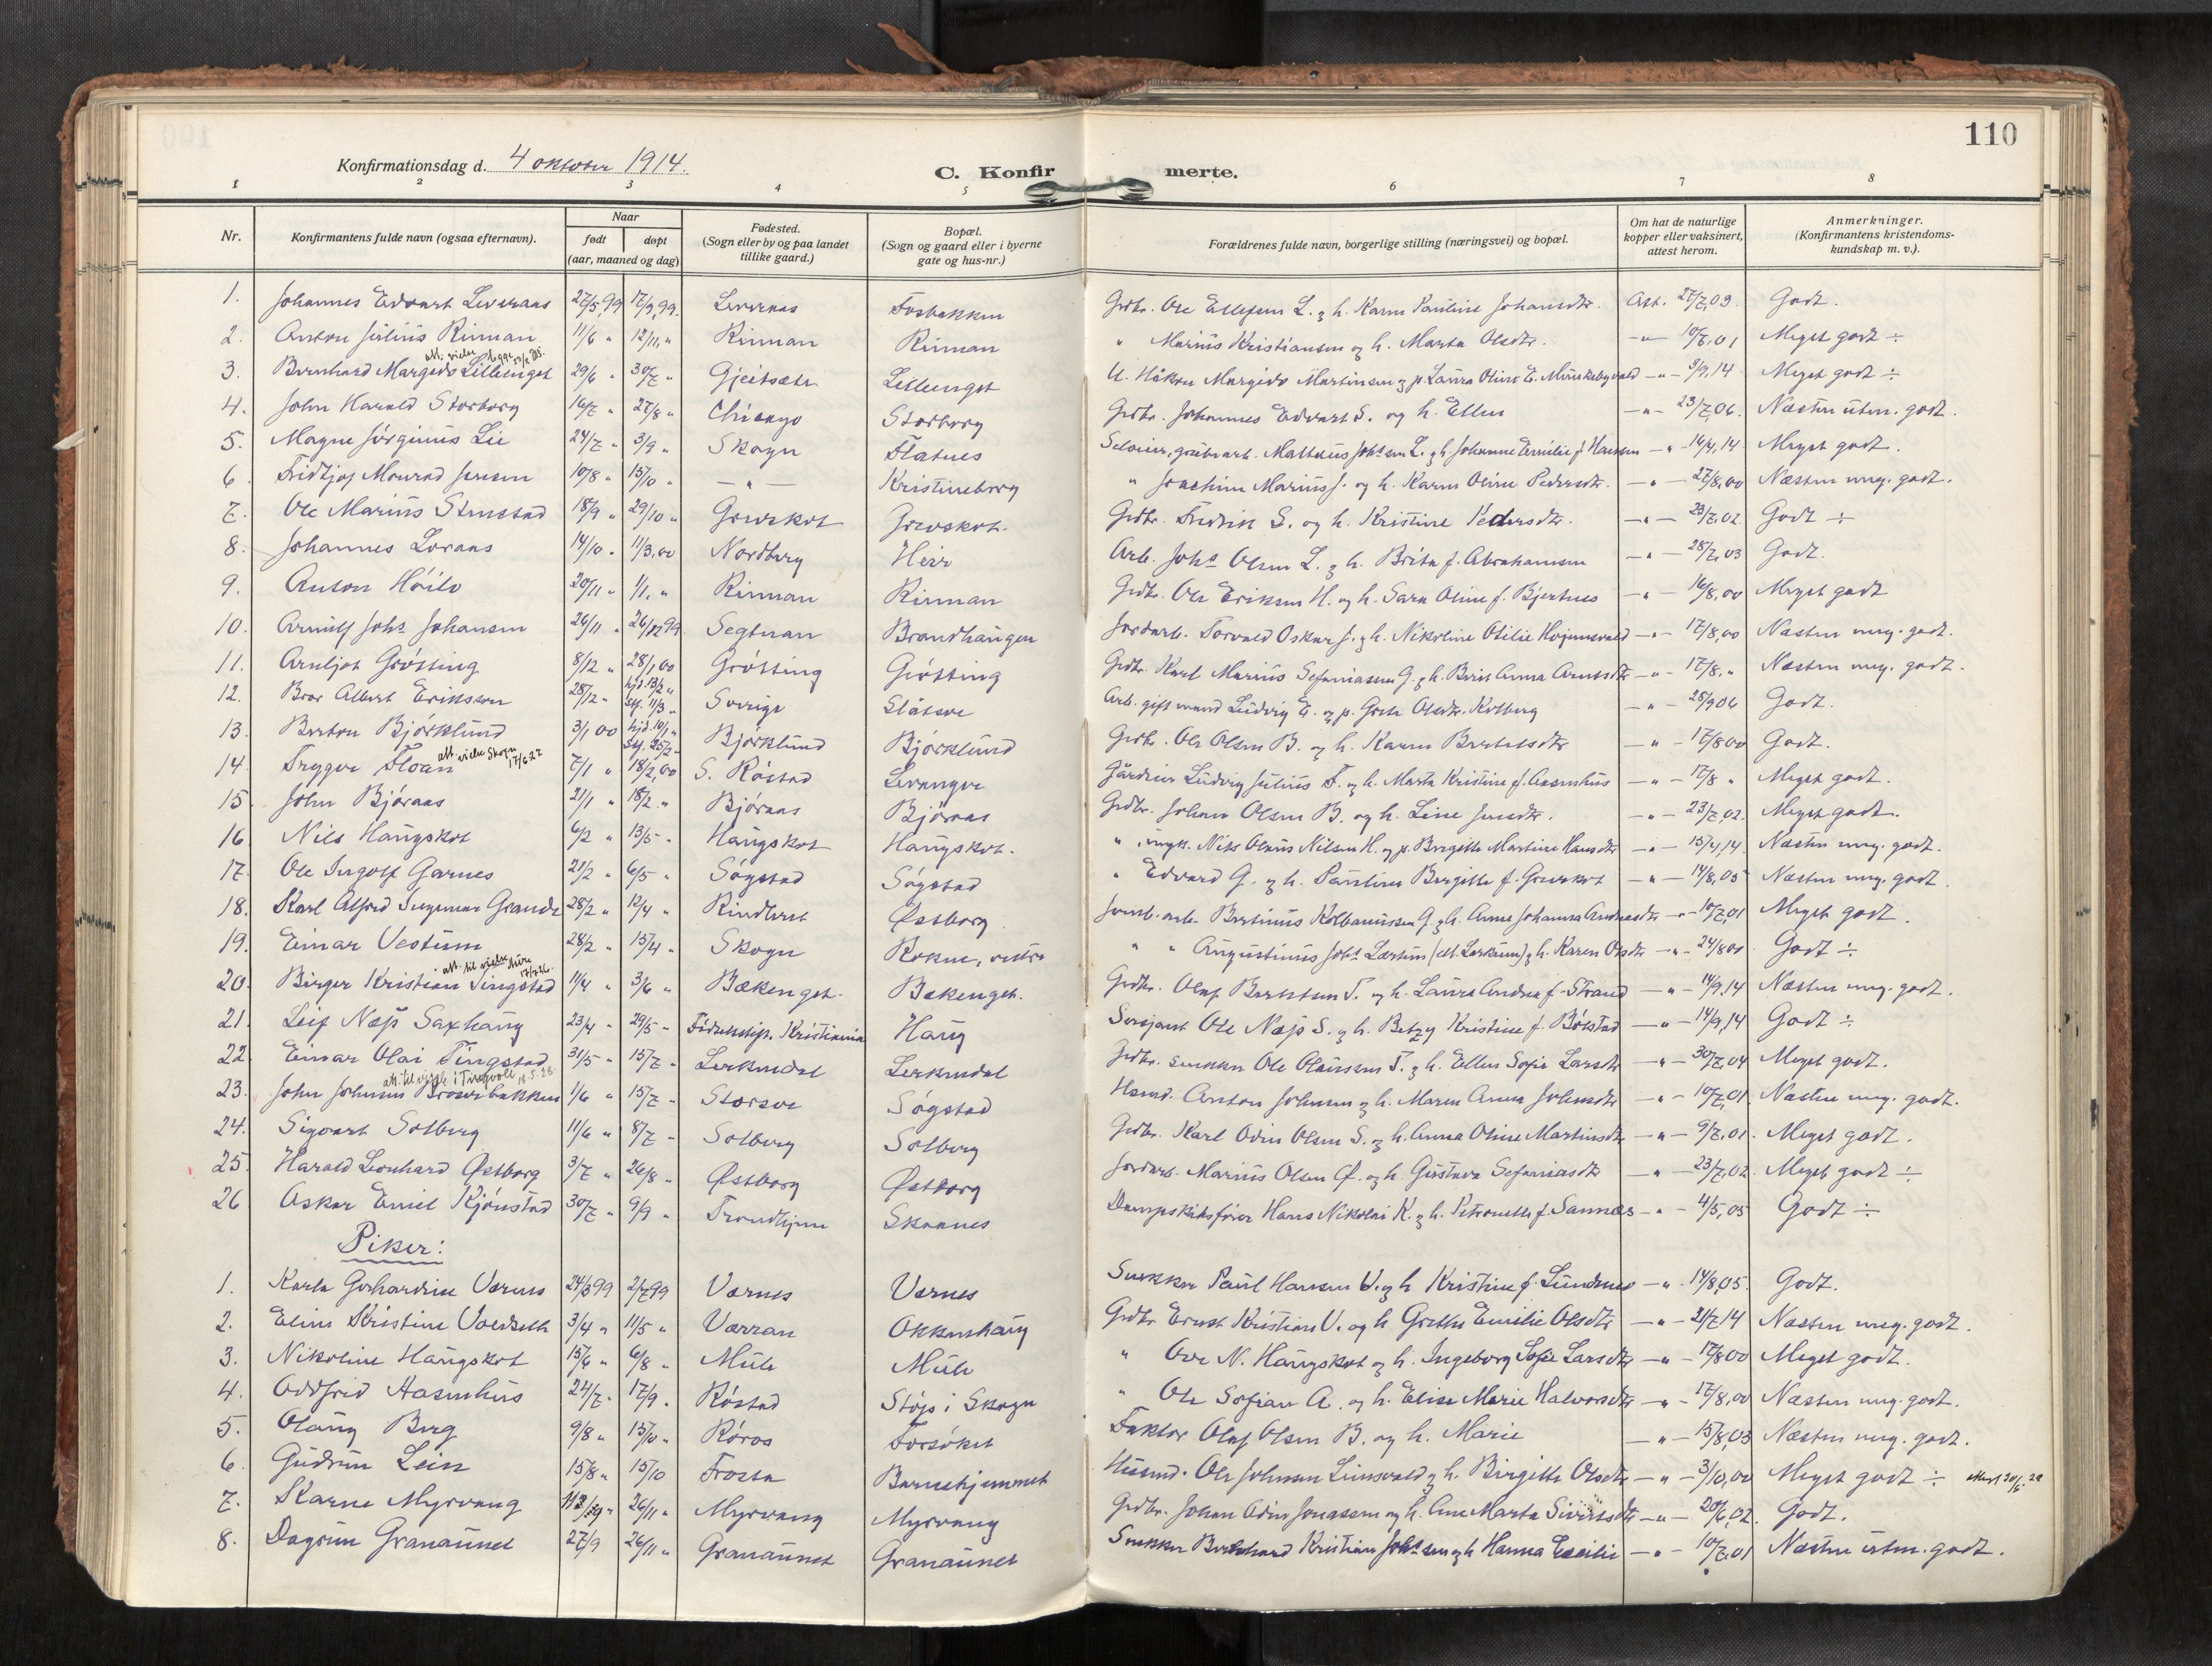 110
Konfirmationsdag d. 4 oktober 1914.
C. Konfirmerte.
1 2 3 4 5 6 7 8
Nr. Konfirmantens fulde navn (ogsaa efternavn). Naar født døpt (aar, maaned og dag) Fødested. (Sogn eller by og paa landet tillike gaard.) Bopæl. (Sogn og gaard eller i byerne gate og hus-nr.) Forældrenes fulde navn, borgerlige stilling (næringsvei) og bopæl. Om hat de naturlige kopper eller vaksinert, attest herom. Anmerkninger. (Konfirmantens kristendomskundskap m. v.).
1. Johannes Edvart Leveraas 27/5,99 17/9,99. Leveraas Fosbakken Grdbr. Ole Ellefsen L. & h. Karen Pauline Johansdtr. Att. 27/7,09. Godt.
2. Anton Julius Rinnan 11/6 " 12/11, " Rinnan Rinnan " Marius Kristiansen og h. Marta Olsdtr. —"— 10/7,01 Meget godt ÷
3. Bernhard Margido Lillenget 29/6 " 30/7 " Gjeitsæter Lillenget U. Håkon Margido Martinsen & p. Laura Oline E. Munkebyvald —"— 3/9,14 Meget godt ÷
4. John Harald Storborg 16/7 " 27/8 " Chicago Storborg Grdbr. Johannes Edvart S. og h. Ellen —"— 23/7,06. Næsten utm. godt.
5. Magne Jørginus Lie 24/7 " 3/9 " Skogn Flatnes Selveier, grubearb. Mattæus Johssen L. & h. Johanne Emilie f. Hansen —"— 14/4,14 Meget godt.
6. Fridtjof Monrad Jensen 10/8 " 15/10 " —"— Kristineborg " Joachim Marius J. og h. Karen Oline Pedersdtr. —"— 27/8,00 Næsten meg. godt.
7. Ole Marius Stenstad 18/9 " 29/10 " Grevskot Grevskot. Grdbr. Fredrik S. og h. Kristine Pedersdtr. —"— 23/7,02 Godt ÷
8. Johannes Loraas 14/10 " 11/3,00 Nordberg Heir Arb. Johs Olsen L. & h. Brita f. Abrahamsen —"— 28/7,03 Godt.
9. Anton Høilo 20/11 " 1/1, " Rinnan Rinnan Grdbr. Ole Eriksen H. og h. Sara Oline f. Bjertnes —"— 16/8,00 Meget godt
10. Arnulf Johs Johansen 26/11 " 26/12 99 Segtnan Brandhaugen Jordarb. Torvald Oskar J. & h. Nikoline Otilie Hojemsvald —"— 17/8,00 Næsten meg. godt.
11. Arnljot Grøtting 8/12 " 28/1,00 Grøtting Grøtting Grdbr. Karl Marius Sefaniasen G. & h. Berit Anna Arntsdtr —"— 17/8. " Næsten meg. godt.
12. Bror Albert Eriksson 28/12 " hjd. 13/2 " stf. 11/3 " Sverige Slåtsve Arb. gift mand Ludvig E. og p. Grete Olsdtr. Kolberg —"— 25/9 06 Godt.
13. Berton Bjørklund 3/1 00 hjd. 10/1, " stf. 25/2 " Bjørklund Bjørklund Grdbr. Ole Olsen B. og h. Karen Bertelsdtr —"— 17/8 00 Godt.
14. Trygve Floan att. vielse Skogn 17/6 27 7/1 " 18/2,00 S. Røstad Levanger Gårdeier Ludvig Julius F. og h. Marta Kristine f. Aasenhus —"— 17/8 " Meget godt.
15. John Bjøraas 21/1 " 18/2. " Bjøraas Bjøraas Grdbr. Johan Olsen B. og h. Line Jensdtr. —"— 23/7,02. Meget godt.
16. Nils Haugskot 6/2 " 13/5 " Haugskot Haugskot. " ungk. Nils Olaus Nilsen H. og p. Bergitte Martine Hansdtr —"— 15/4,14. Næsten meg. godt.
17. Ole Ingolf Garnes 21/2 " 6/5 " Søgstad Søgstad " Edvard G. & h. Pauline Bergitte f. Grevskot —"— 14/8,05 Næsten meg. godt.
18. Karl Alfred Ingemar Grande 28/2 " 12/4 " Rindberit Østborg Jernb. arb. Bertinus Kolbanussen G. & h. Anne Johanna Andreasdtr —"— 10/7,01 Meget godt.
19. Einar Vestum 28/2 " 15/4 " Skogn Rokne, vestre " " Augustinus Johs Lerstein & h. Karen Olsdtr —"— 24/8 01 Godt ÷
20. Birger Kristian Tingstad att. til vielse 11/4 " 3/6 " Bækenget. Bekenget. Grdbr. Olaf Berntsen T. og h. Laura Andrea f. Strand —"— 14/9,14 Næsten meg. godt.
21. Leif Næss Saxhaug 23/4 " 29/5 " Fødselsstift. Kristiania Haug Sersjant Ole Næss S. & h. Betzy Kristine f. Bølstad —"— 14/9,14 Godt ÷
22. Einar Olai Tingstad 31/5 " 15/7 " Lerkendal Lerkendal Grdbr. snekker Ole Olaussen T. & h. Ellen Sofie Larsdtr —"— 30/7,04 Meget godt.
23. John Johnsen Brosvebakken att. til vielse i Tingvoll 18.5.28. 1/6 " 15/7 " Storsve Søgstad Husmd. Anton Johnsen & h. Maren Anna Johnsdtr —"— 10/7,01. Næsten meg. godt.
24. Sigvart Solberg 11/6 " 8/7 " Solberg Solberg Grdbr. Karl Odin Olsen S. & h. Anna Oline Martinsdtr —"— 9/7,01. Meget godt.
25. Harald Leonhard Østborg 3/7 " 26/8 " Østborg Østborg Jordarb. Marius Olsen Ø. og h. Gustava Sefaniasdtr —"— 23/7,02. Meget godt ÷
26 Oskar Emil Kjønstad 30/7 " 9/9 " Trondhjem Skaanes Dampskibsfører Hans Nikolai K. & h. Petronelle f. Sannæs —"— 4/5,05 Godt ÷
Piker:
1. Karla Gerhardine Vernes 24/3 99 2/7 99 Værnes Vernes Snekker Paul Hansen V. og h Kristine f. Lundenes —"— 14/8,05. Godt.
2. Eline Kristine Voldseth 3/4 " 11/5 " Værran Okkenhaug Grdbr Ernst Kristian V. og h Grethe Emilie Olsdtr —"— 21/7 14 Næsten meg. godt.
3. Nikoline Haugskot 15/6 " 6/8 " Mule Mule " Ove N. Haugskot og h. Ingeborg Sofie Larsdtr —"— 17/8 00 Meget godt.
4. Oddfrid Aasenhus 24/7 " 17/9 " Røstad Støp i Skogn " Ole Sofian A. og h. Elise Marie Halvorsdtr —"— 17/8,00 Næsten meg. godt.
5. Olaug Berg 9/8 " 15/10 " Røros Forsøket Faktor Olaf Olsen B. og h. Marie —"— 15/8,03 Næsten meg. godt.
6. Gudrun Lein 15/8 " 15/10 Frosta Barnehjemmet Husmd. Ole Johnsen Leinsvald & h. Birgitte Olsdtr —"— 3/10,00 Meget godt ÷
7. Karen Myrvang 26/11 " Myrvang Myrvang Grdbr. Johan Odin Jonassen og h. Ane Marta Sivertsdtr —"— 20/6,02. Godt.
8. Dagrun Granaunet 27/9 26/11 " Granaunet Granaunet Snekker Bernhard Kristian Johssen & h Hanna Cecilie —"— 10/7,01 Næsten utm. godt.